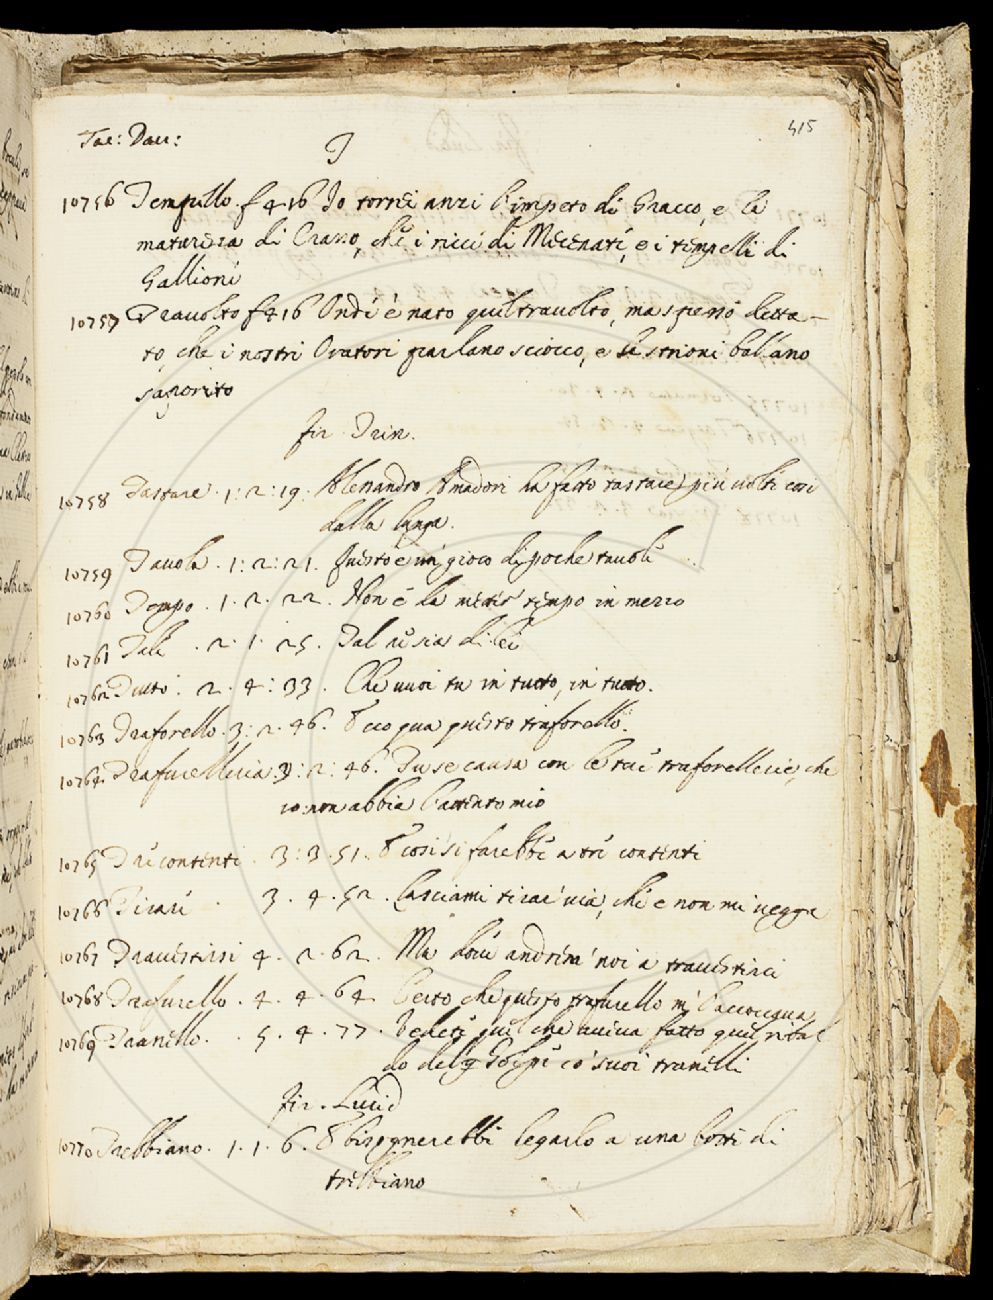 415
Tac: Dau:
T
10756 Tempello f 416 Io torrei anzi l'impeto di Gracco, e la
maturezza di Crasso, che i ricci di Mecenate, e i tempelli di
Gallione
10757 Travolto f 416 Onde è nato quel travolto, ma spesso detta-
to, che i nostri Oratori parlano sciocco, e li strioni ballano
saporito
fir Trin.
10758 Tastare . 1: 2: 19: Alessandro Amadori ha fatto tastare più volte così
dalla lunga.
10759 Tavola . 1: 2: 21. Questo è un gioco di poche tavole
10760 Tempo . 1. 2. 22. Non è da metter tempo in mezzo
10761 Tale . 2. 1. 25. Tal ne sia di lei
10762 Tutto . 2. 4: 33. Che vuoi tu in tutto, in tutto.
10763 Traforello . 3: 2. 46. Ecco qua questo traforello.
10764 Trafurelleria 3: 2: 46. Tu se causa con le tue traforellerie, che
io non abbia l'attento mio
10765 Tre contenti . 3: 3. 51. E così si farebbe a tre contenti
10766 Tirare . 3. 4. 52. Lasciami tirar via, che e non mi vegga
10767 Travestirsi 4. 2. 62. Ma dove andrem noi a travestirci
10768 Trafurello . 4. 4. 64 Certo che questo trafurello m' l'accoccava
10769 Tranello . . 5. 4. 77. Vedete quel che aveva fatto quel ribal
do del Golpe co' suoi tranelli
fir. Lucid
10770 Trebbiano. 1. 1. 6. E bisognerebbe legarlo a una botte di
trebbiano